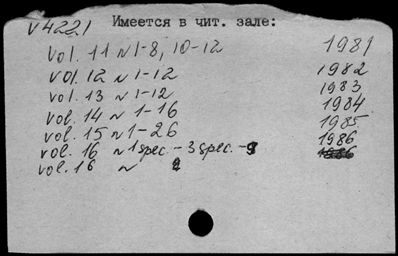 V4221 Имеется в чит. зале:
Vol. 11 N 1-8, 10-12 1981
Vol. 12 N 1-12 1982
Vol. 13 N 1-12 1983
Vol. 14 N 1-16 1984
Vol. 15 N 1-26 1985
Vol. 16 N 1 spec. - 3 spec. - 9 1986
Vol. 16 N